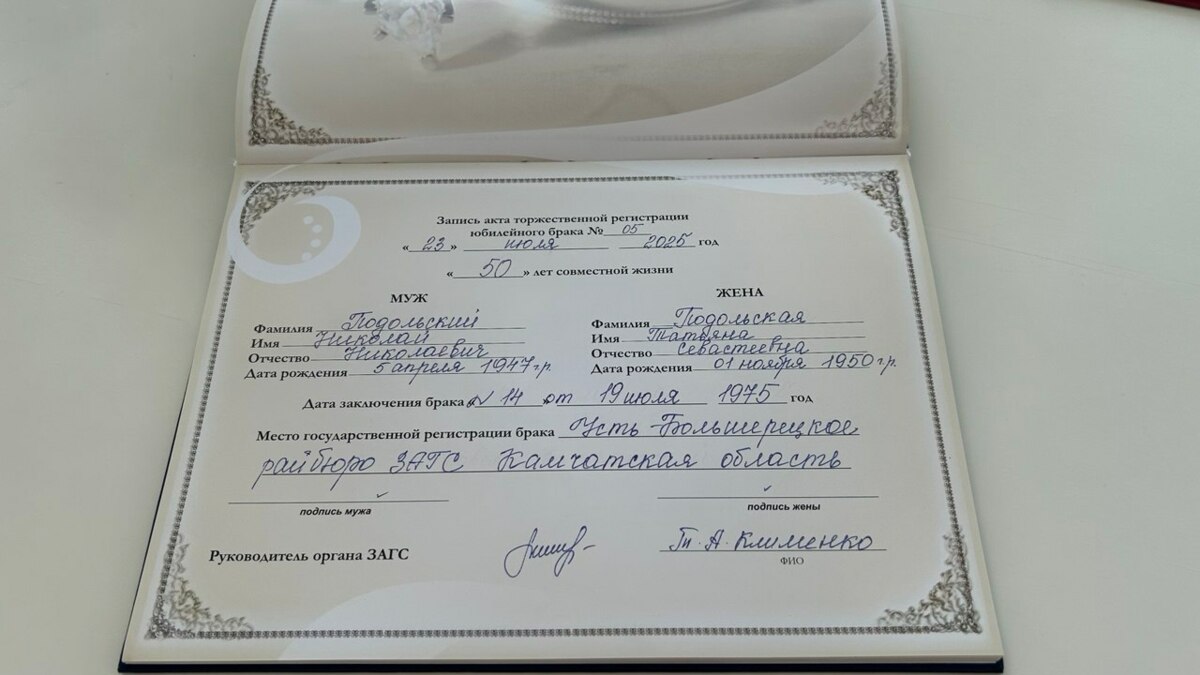 Запись акта торжественной регистрации
юбилейного брака № 05
« 23 » июля 2025 год
« 50 » лет совместной жизни
МУЖ
Фамилия Подольский
Имя Николай
Отчество Николаевич
Дата рождения 5 апреля 1947 г.р.
ЖЕНА
Фамилия Подольская
Имя Татьяна
Отчество Севастеевна
Дата рождения 01 ноября 1950 г.р.
Дата заключения брака « N 14 » от 19 июля 1975 год
Место государственной регистрации брака Усть-Большерецкое
райбюро ЗАГС Камчатская область
подпись мужа
подпись жены
Руководитель органа ЗАГС А. Клименко
ФИО